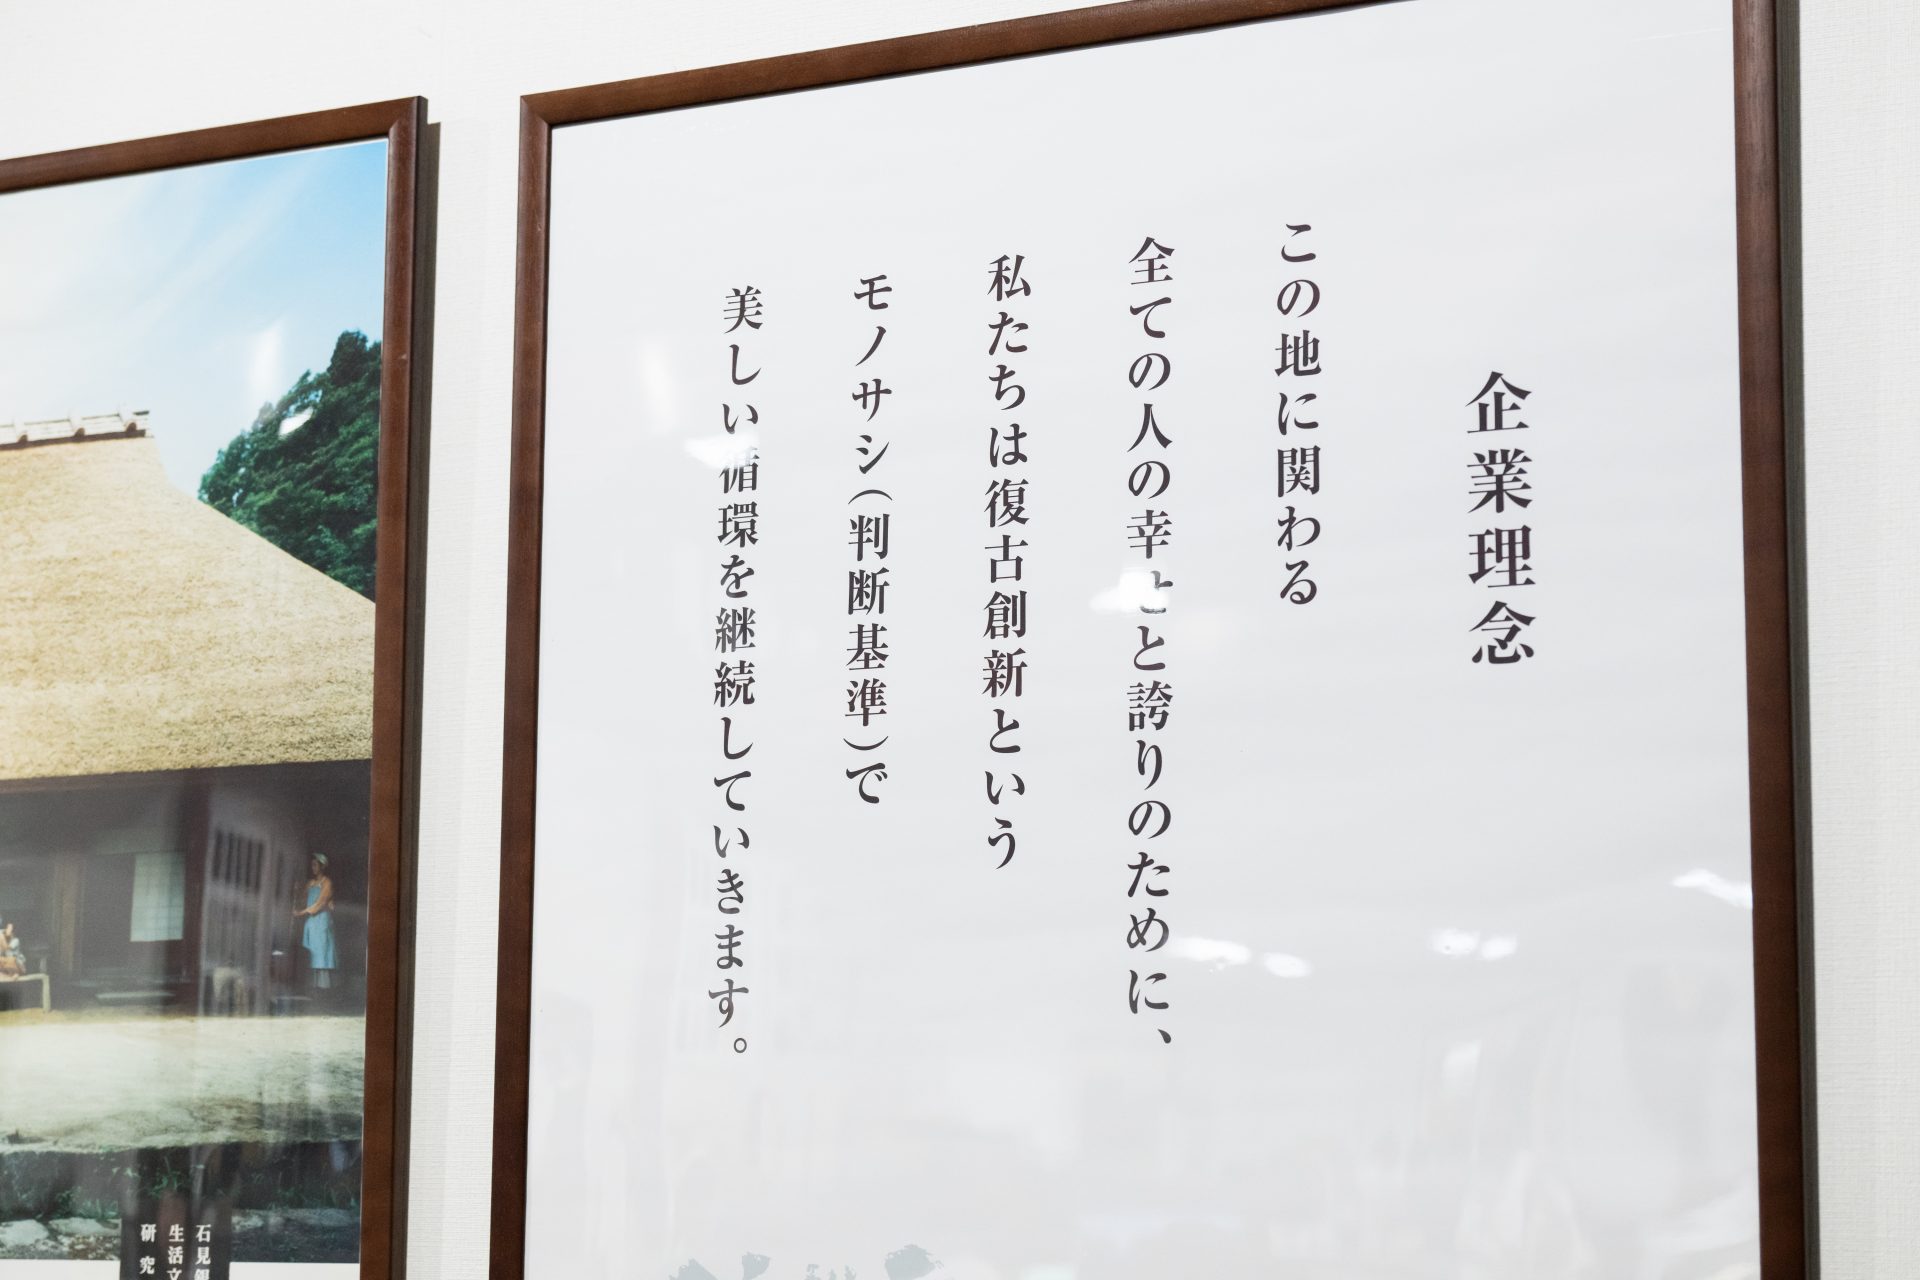 企業理念
この地に関わる
全ての人の幸せと誇りのために、
私たちは復古創新という
モノサシ（判断基準）で
美しい循環を継続していきます。
石見銀
生活文
研究